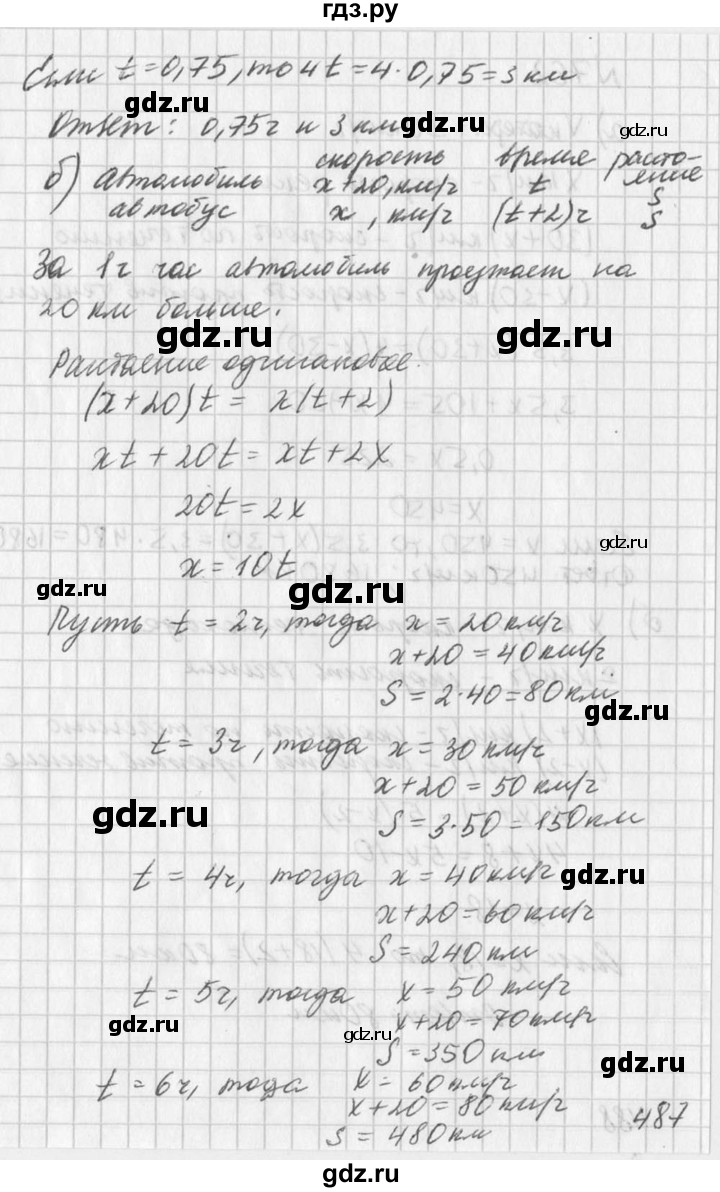 гдз.ру
Если t=0,75, то 4t=4·0,75=3 км
gdz.ru
Ответ: 0,75ч и 3 км
gdz.ru
скорость время расто-
яние
б) автомобиль x+20, км/ч t S
автобус x, км/ч (t+2)ч S
gdz.ru
За 1ч час автомобиль проезжает на
20 км больше.
gdz.ru gdz.ru
Растояние одинаковое.
(x+20)t = x(t+2)
xt+20t = xt+2x
20t=2x
gdz.ru
x=10t
gdz.ru
gdz.ru
Пусть t=2ч, тогда x=20км/ч
x+20=40км/ч
S=2·40=80км
gdz.ru
t=3ч, тогда x=30км/ч
x+20=50км/ч
gdz.ru
S=3·50=150км
t=4ч, тогда x=40км/ч
gdz.ru
x+20=60км/ч
S=240км
t=5ч, тогда x=50км/ч
gdz.ru
x+20=70км/ч
gdz.ru
S=350км
gdz.ru
t=6ч, тода x=60км/ч
x+20=80км/ч
487
S=480км
gdz.ru gdz.ru